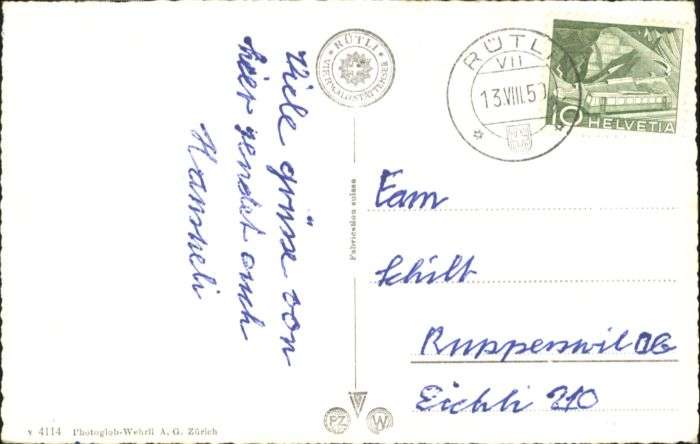 Viele grüsse von
hier sendet euch
Hansheli
RÜTLI
VIERWALDSTÄTTERSEE
RÜTLI
VII
13.VIII.50
10 HELVETIA
Fam
Schilt
Rupperswil AG
Eichli 210
Fabrication suisse
PZ W
v 4114 Photoglob-Wehrli A. G. Zürich